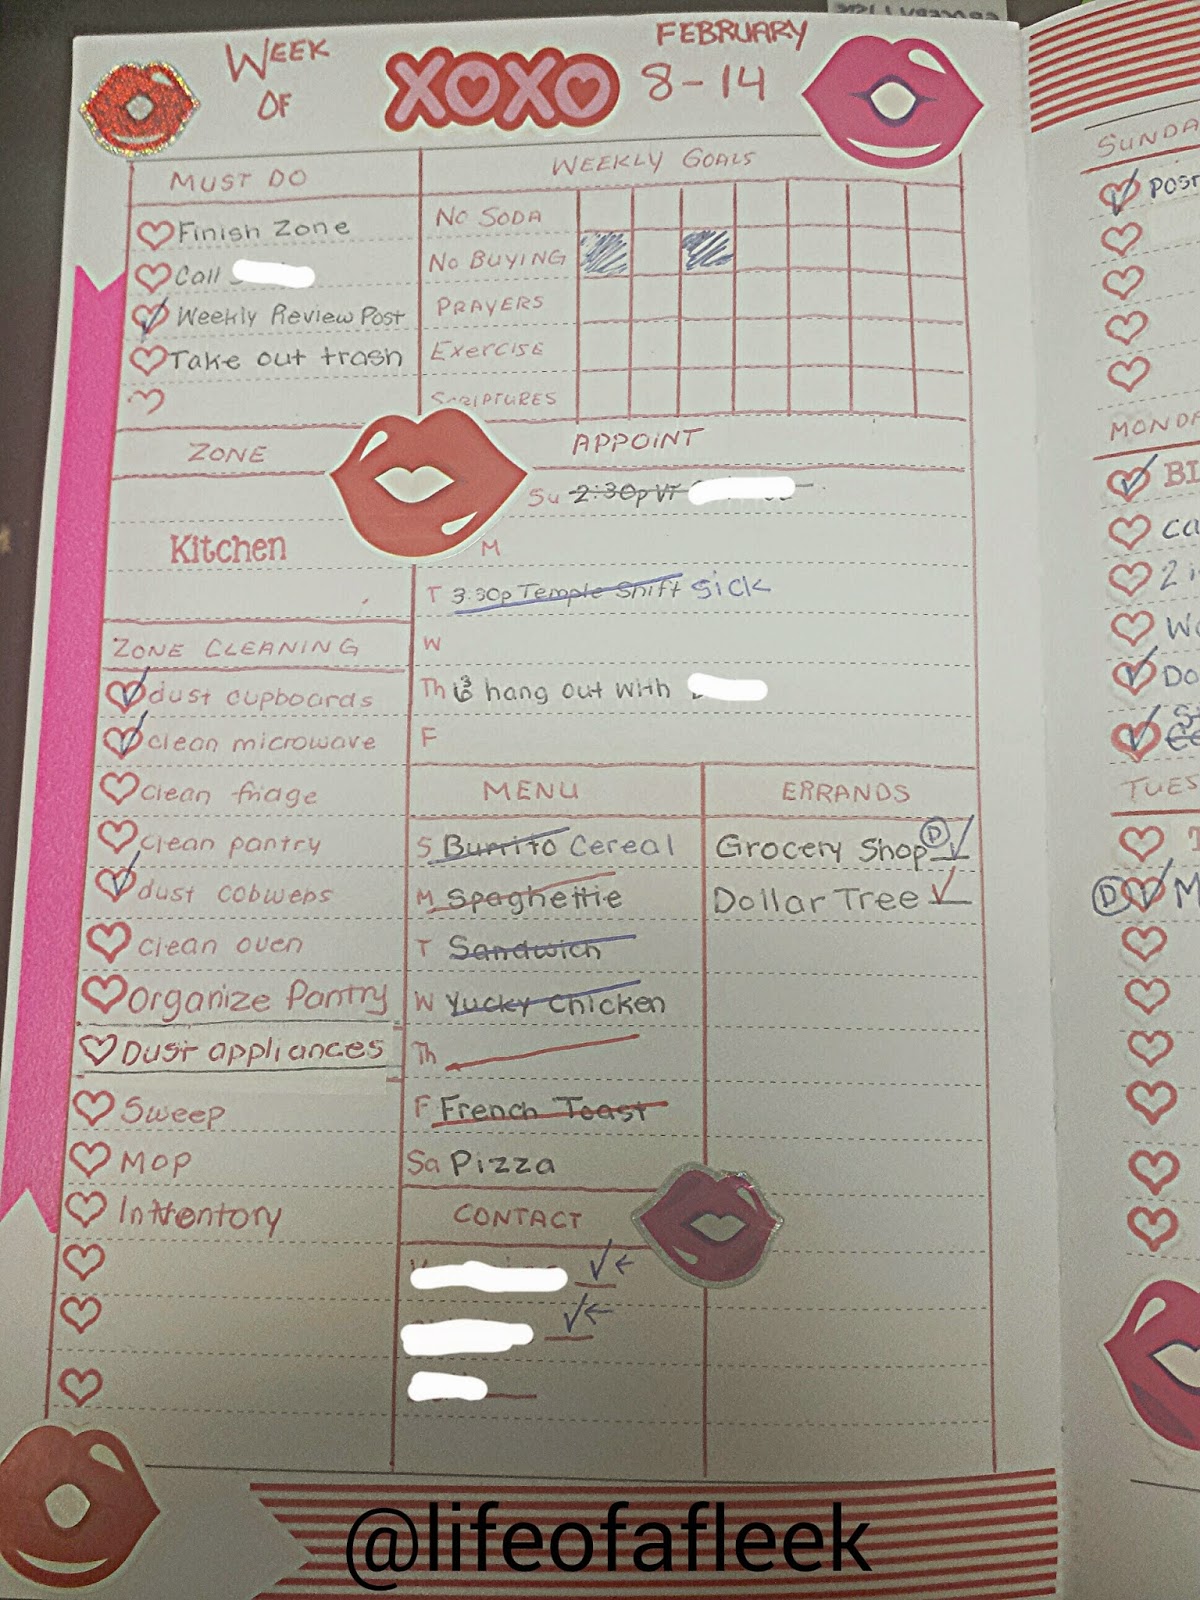 WEEK OF
XOXO
FEBRUARY
8-14
MUST DO
Finish Zone
Call
Weekly Review Post
Take out trash
WEEKLY GOALS
NO SODA
NO BUYING
PRAYERS
EXERCISE
SCRIPTURES
ZONE
Kitchen
APPOINT
Su 2:30p VT
M
T 3:30p Temple Shift SICK
W
Th hang out with
F
ZONE CLEANING
dust cupboards
clean microwave
clean friage
clean pantry
dust cobwebs
clean oven
Organize Pantry
Dust appliances
Sweep
Mop
Inventory
MENU
S Burrito Cereal
M Spaghettie
T Sandwich
W Yucky Chicken
Th
F French Toast
Sa Pizza
CONTACT
ERRANDS
Grocery Shop D
Dollar Tree
SUNDA
POST
MONDA
BI
Ca
2
Do
TUES
D M
@lifeofafleek